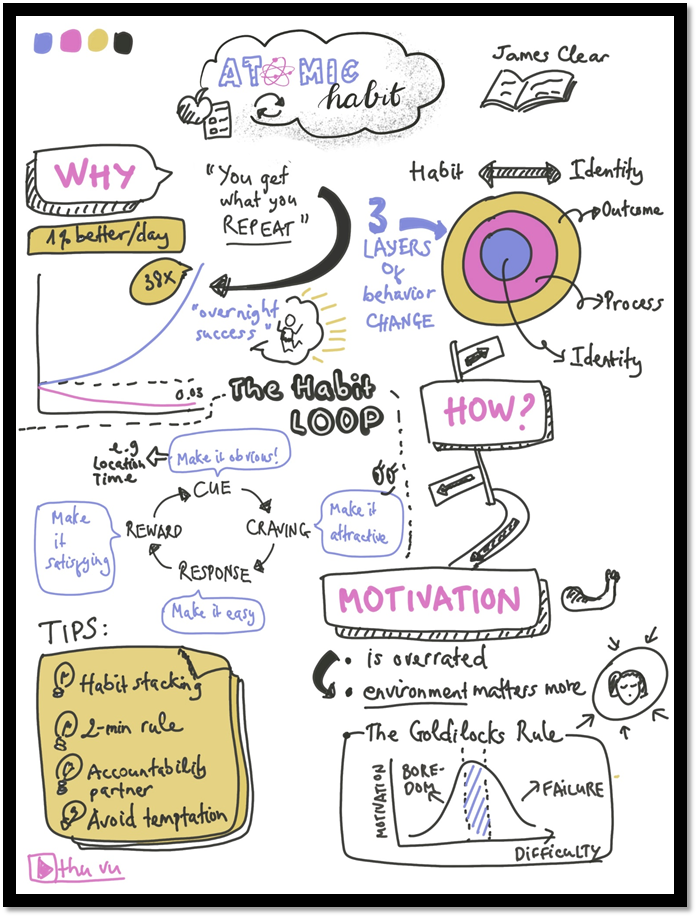 ATOMIC
habit
James Clear
WHY
"You get
what you
REPEAT"
1% better/day
38x
"overnight
success"
0.03
Habit
Identity
3
LAYERS
of
behavior
CHANGE
Outcome
Process
Identity
HOW?
The Habit
LOOP
e.g
Location
Time
Make it obvious!
CUE
Make
it
satisfying
REWARD
CRAVING
Make it
attractive
RESPONSE
Make it easy
MOTIVATION
• is overrated
• environment matters more
TIPS:
Habit stacking
2-min rule
Accountability
partner
Avoid temptation
The Goldilocks Rule
MOTIVATION
BORE-
DOM
FAILURE
DIFFICULTY
thu vu